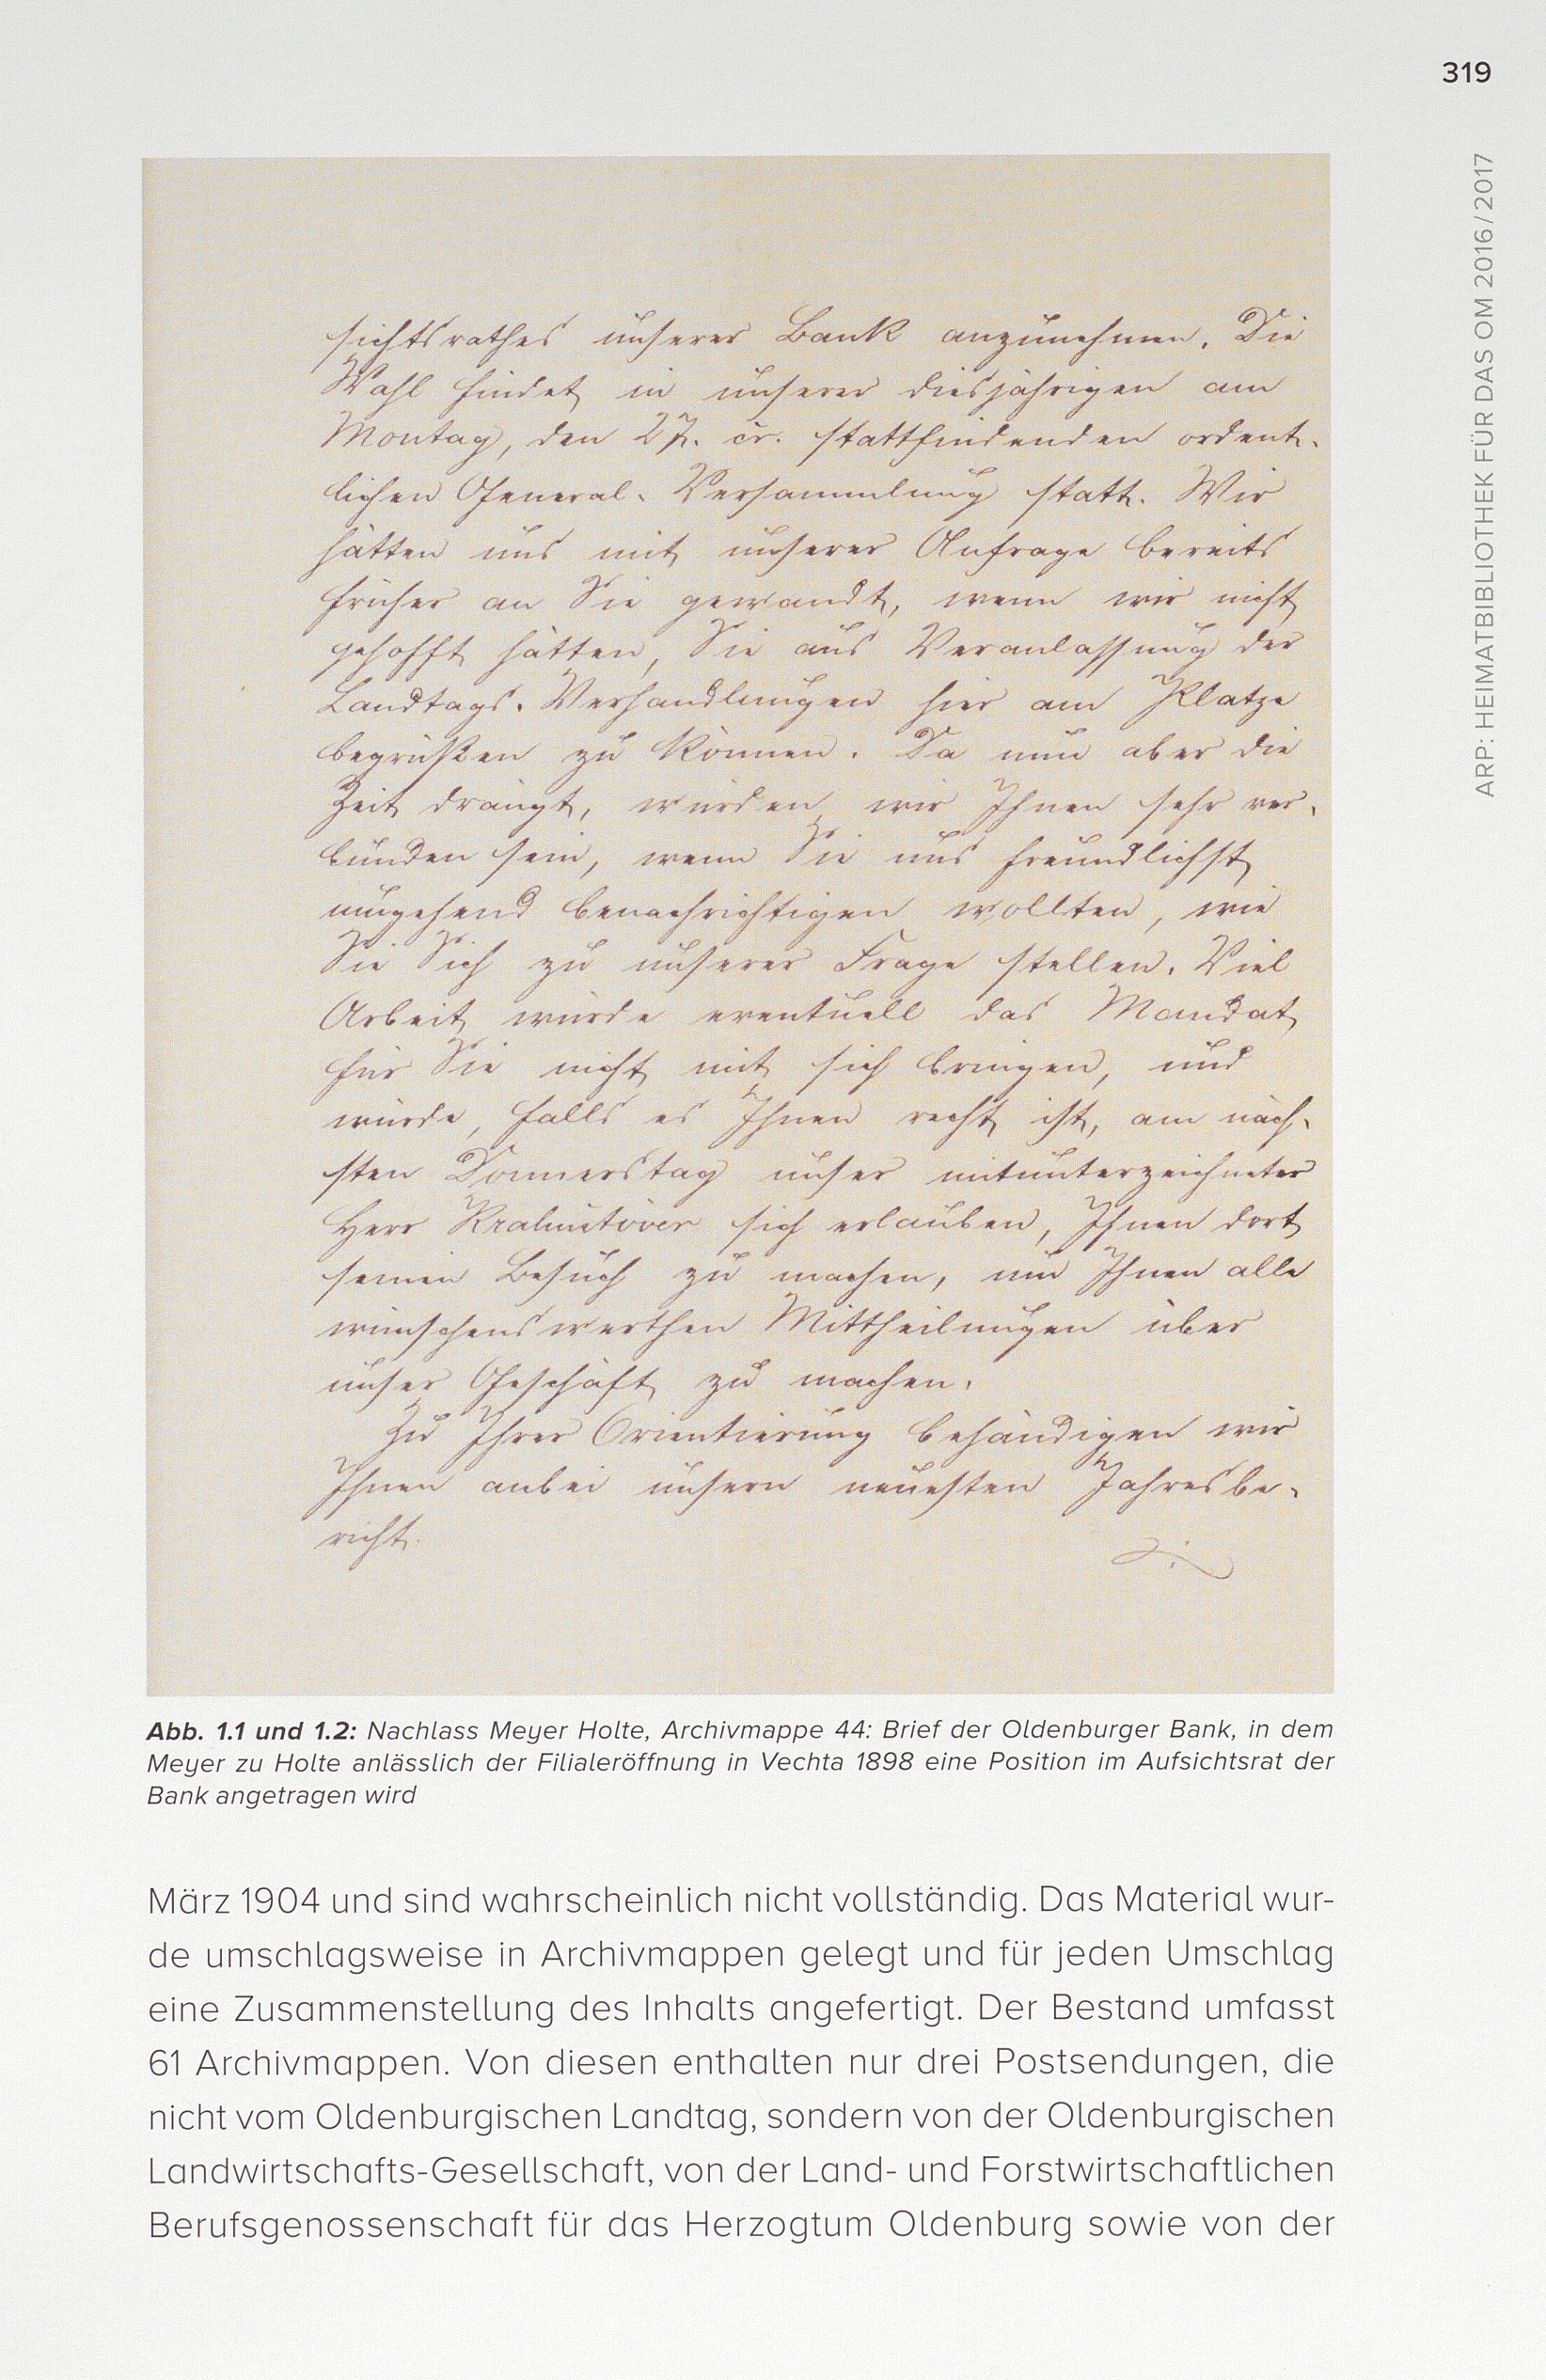 319
ARP: HEIMATBIBLIOTHEK FÜR DAS OM 2016/2017
sichtsrathes unserer Bank anzunehmen. Die
Wahl findet in unserer diesjährigen am
Montag, den 27. cr. stattfindenden ordent-
lichen General-Versammlung statt. Wir
hätten uns mit unserer Anfrage bereits
früher an Sie gewandt, wenn wir nicht
gehofft hätten, Sie aus Veranlassung der
Landtags-Verhandlungen hier am Platze
begrüßen zu können. Da nun aber die
Zeit drängt, würden wir Ihnen sehr ver-
bunden sein, wenn Sie uns freundlichst
umgehend benachrichtigen wollten, wie
Sie Sich zu unserer Frage stellen. Viel
Arbeit würde eventuell das Mandat
für Sie nicht mit sich bringen, und
würde, falls es Ihnen recht ist, am näch-
sten Donnerstag unser mitunterzeichneter
Herr sich erlauben, Ihnen dort
seinen Besuch zu machen, um Ihnen alle
wünschenswerthen Mittheilungen über
unser Geschäft zu machen.
Zu Ihrer Orientierung behändigen wir
Ihnen anbei unsern neuesten Jahresbe-
richt.
Abb. 1.1 und 1.2: Nachlass Meyer Holte, Archivmappe 44: Brief der Oldenburger Bank, in dem
Meyer zu Holte anlässlich der Filialeröffnung in Vechta 1898 eine Position im Aufsichtsrat der
Bank angetragen wird
März 1904 und sind wahrscheinlich nicht vollständig. Das Material wur-
de umschlagsweise in Archivmappen gelegt und für jeden Umschlag
eine Zusammenstellung des Inhalts angefertigt. Der Bestand umfasst
61 Archivmappen. Von diesen enthalten nur drei Postsendungen, die
nicht vom Oldenburgischen Landtag, sondern von der Oldenburgischen
Landwirtschafts-Gesellschaft, von der Land- und Forstwirtschaftlichen
Berufsgenossenschaft für das Herzogtum Oldenburg sowie von der